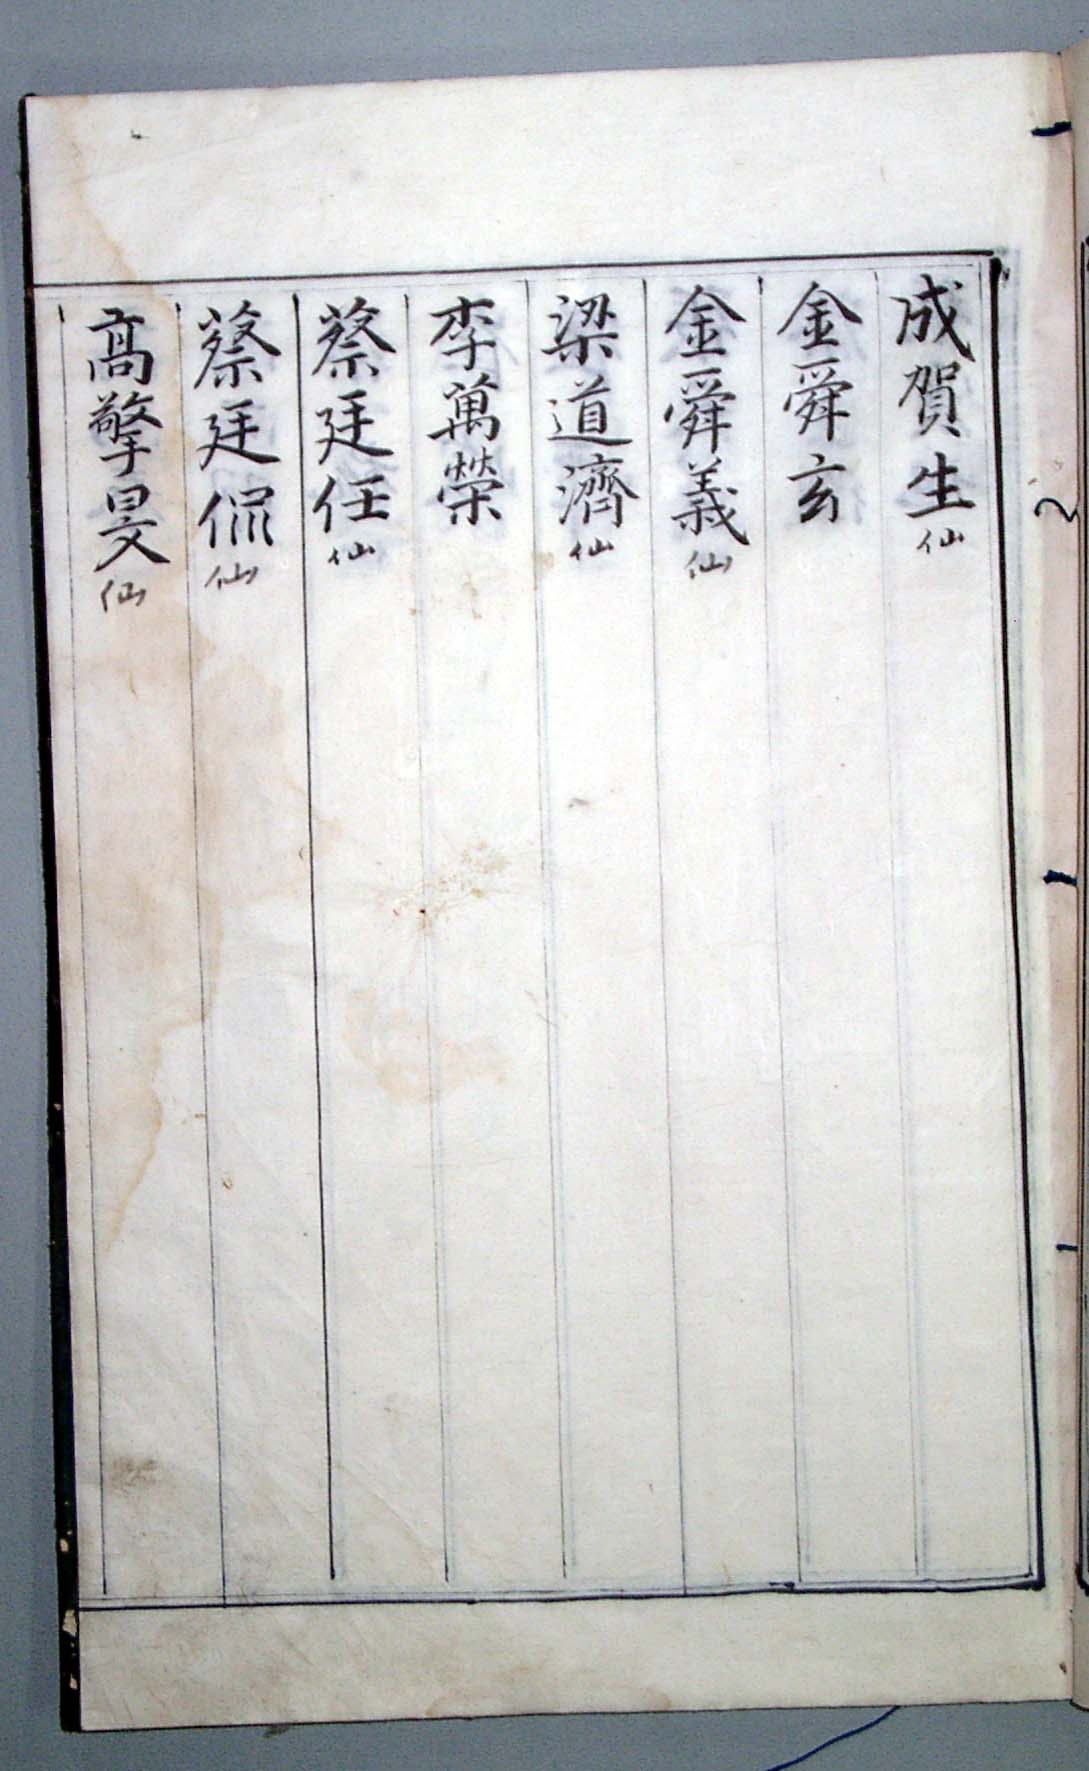 成賀生仙
金舜玄
金舜義仙
梁道濟仙
李萬榮
蔡廷任仙
蔡廷侃仙
高擎旻仙